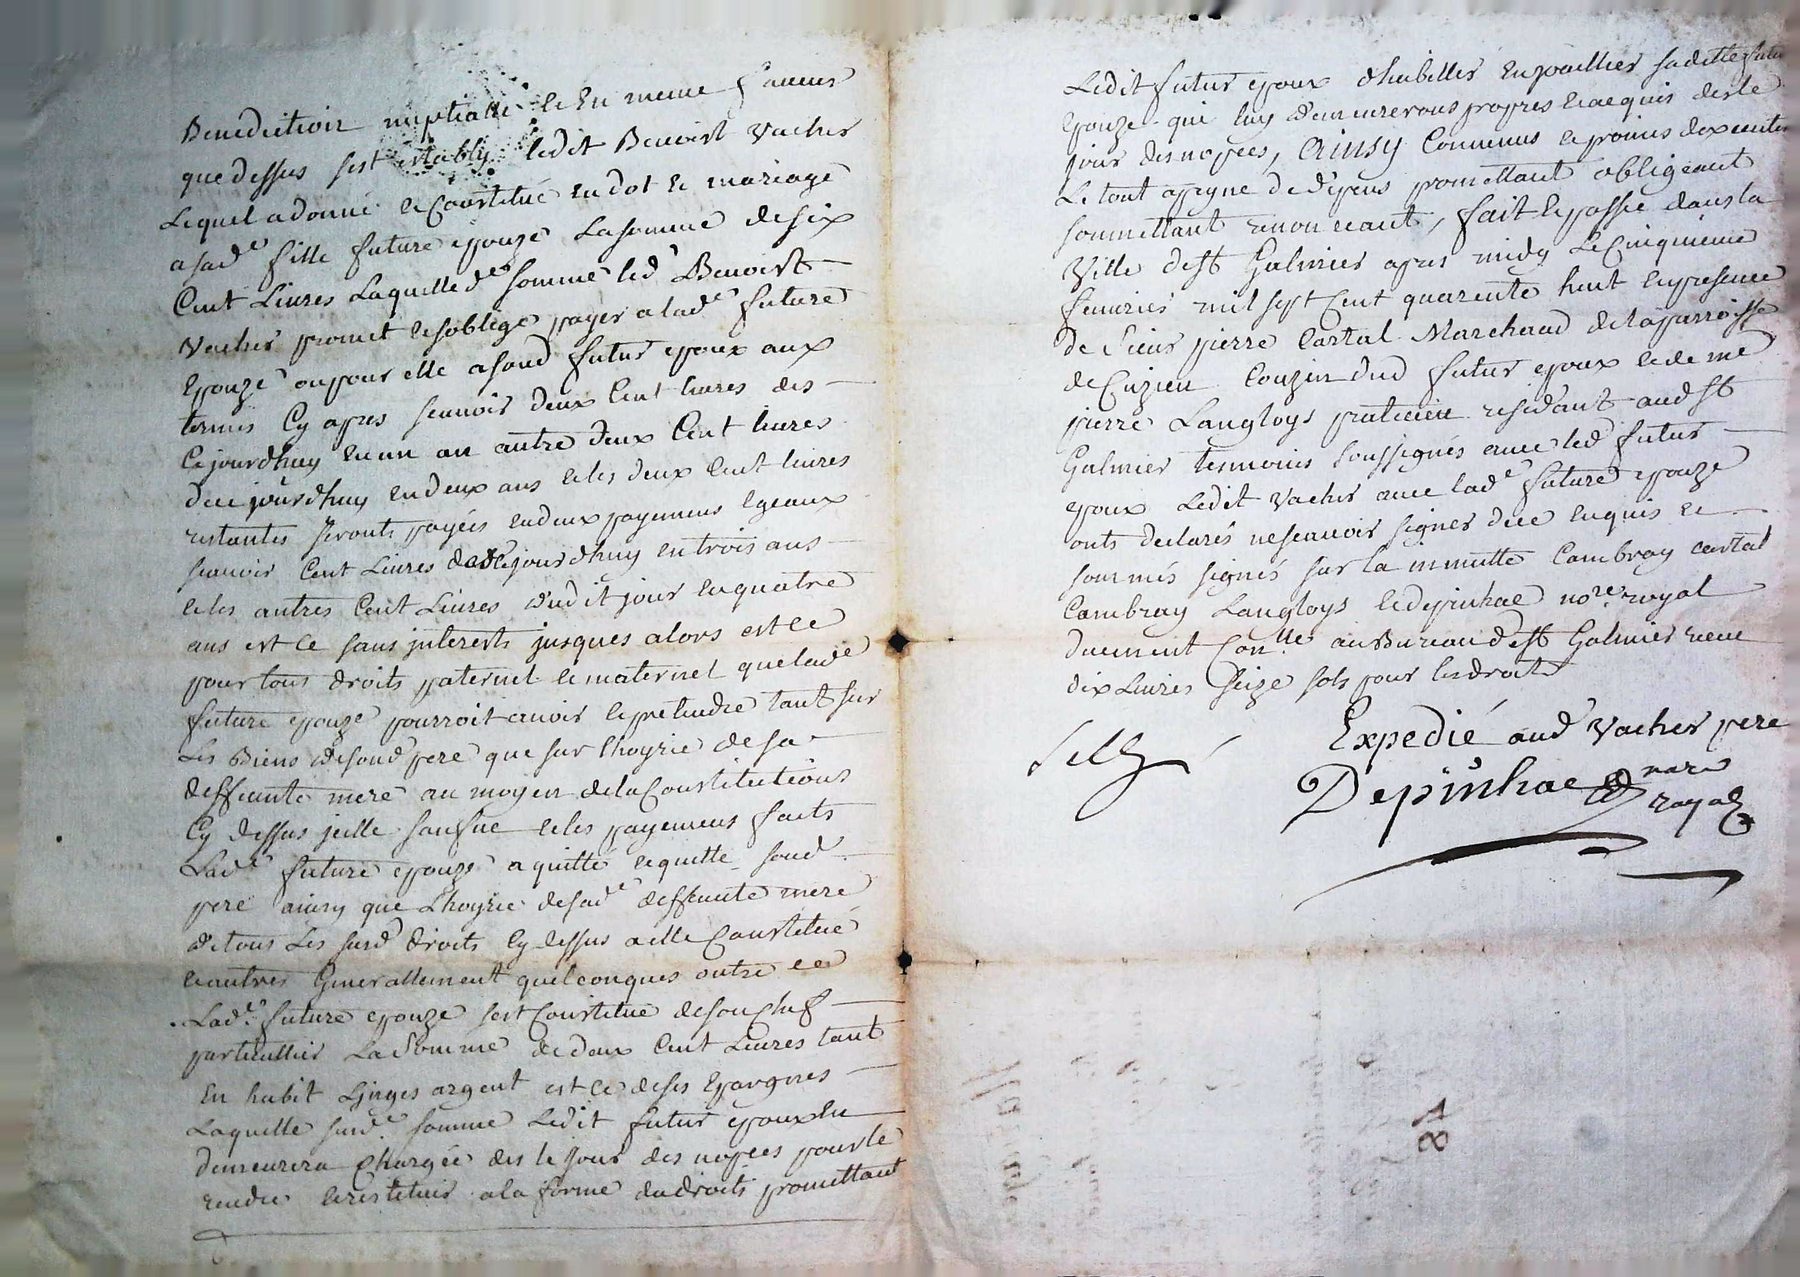 Benediction nuptialle et En meme faueur
que dessus sest estably ledit Benoist Vacher
Lequel a donné et Constitué en dot et mariage
a sad.e fille future epouze La somme de six
Cent Liures Laquelle d.e somme led Benoist
Vacher promet et soblige payer a lad.e future
Epouze ou pour elle a sond futur epoux aux
termes Cy apres scauoir deux Cent liures des
Ce jourdhuy en un an autre deux Cent liures
de ce jourdhuy en deux ans et les deux cent liures
restantes seronts payées en deux payemens Egeaux
scauoir Cent Liures de ce jourdhuy en trois ans
et les autres Cent Liures dudit jour en quatre
ans est ce sans jnterests jusques alors est ce
pour tous droits paternel et maternel que lad.e
future epouze pourroit auoir et pretendre tant sur
Les Biens de sond pere que sur lhoyrie de sa
deffunte mere au moyen de la Constitutions
Cy dessus jcelle et les payemens faits
Lad.e future epouze a quitté et quitte sond
pere ainsy que Lhoyrie de sad.e deffunte mere
de tous Les susd droits Cy dessus a elle Constitué
et autres Generallement quelconques outre ce
Lad.e future epouze sest Constitué de son chef
particullier La Somme de deux Cent Liures tant
En habit Linges argent est ce de ses Epargnes
Laquelle susd.e somme Ledit futur epoux En
demeurera Chargée des le jour des nopces pour le
rendre et restituer a la forme du droits promettant
Ledit futur epoux d habiller En joaillier sa ditte futur
Epouze qui luy demeureronts propres et acquis des le
jour des nopces, Ainsy Conuenus et promis dexecuter
Le tout a peyne de depens promettant obligeant
soumettant renonceant, fait et passé dans la
Ville de St Galmier apres midy Le Cinquieme
feurier mil sept Cent quarente huit en presence
de Sieur pierre Cartal Marchand de la parroisse
de Cuzieu Couzin dud futur epoux et de me
pierre Langloys praticien residant aud St
Galmier temoins soussignés auec led futur
epoux Ledit Vacher auec lad.e future epouze
onts declarés ne scauoir signer de ce enquis et
sommés signés sur la minutte Cambray Cartal
Cambray Langloys et depinhac no.re royal
duement Con.llé au Bureau de St Galmier receu
dix Liures seize sols pour les droits
Expedié aud Vacher pere
Depinhac nore
royal
18